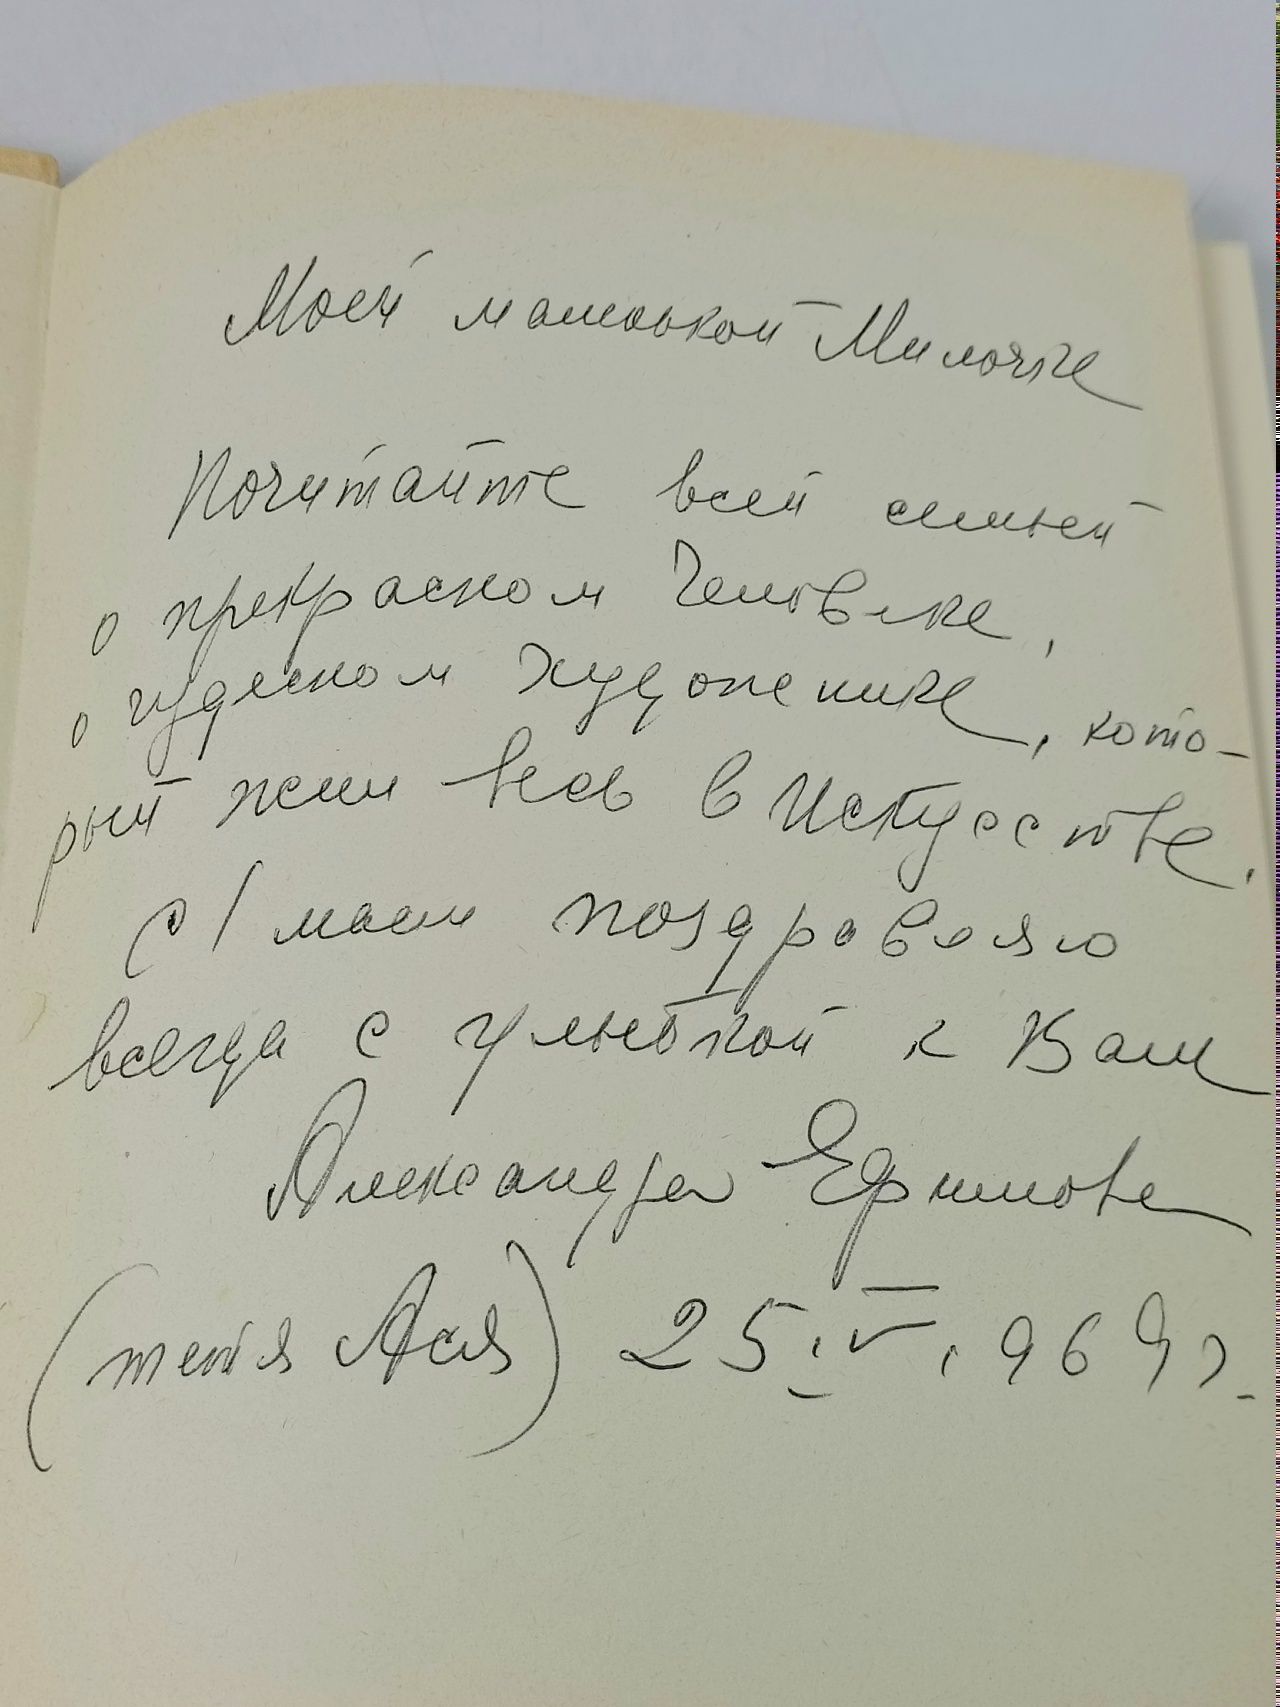 Моей маленькой Милочке
Почитайте всей семьей
о прекрасном Человеке,
о чудесном Художнике, кото-
рый жил весь в Искусстве.
С 1 мая поздравляю
всегда с улыбкой к Вам
Александра Ефимова
(тетя Ася) 25.IV.969г.